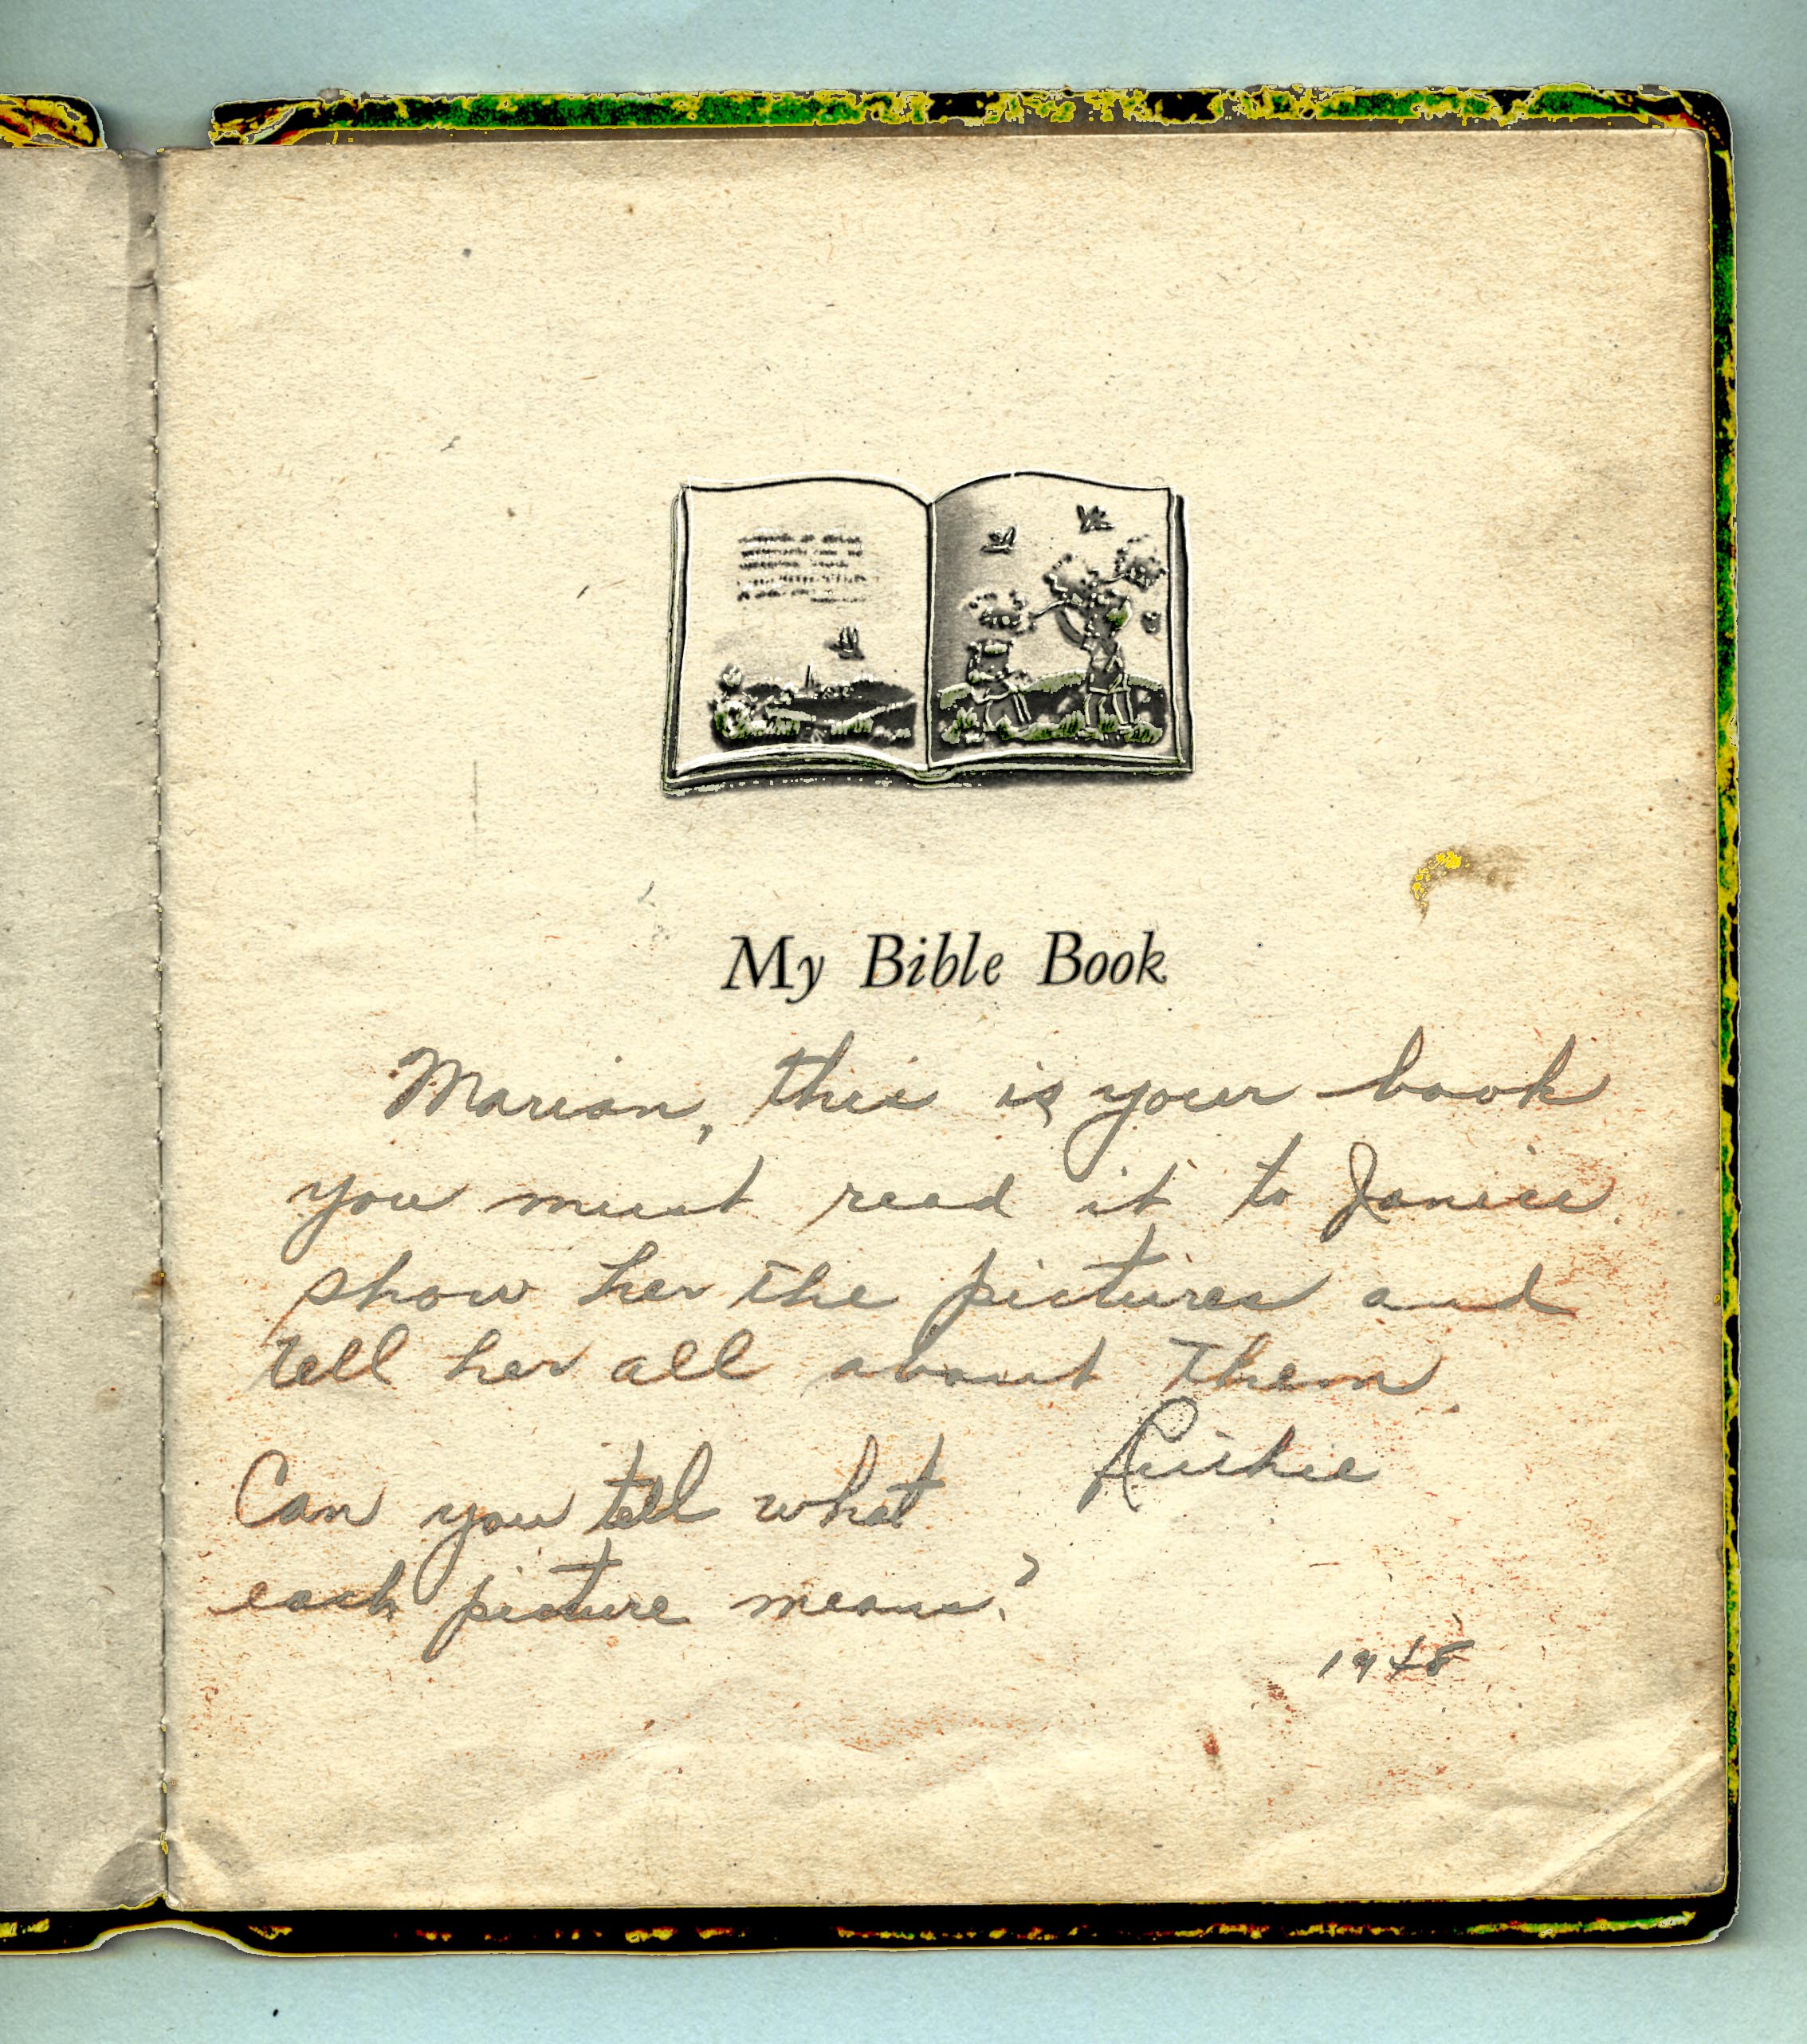 My Bible Book
Marian, this is your book
you must read it to Janice
show her the pictures and
tell her all about them.
Ruthie
Can you tell what
each picture means?
1948